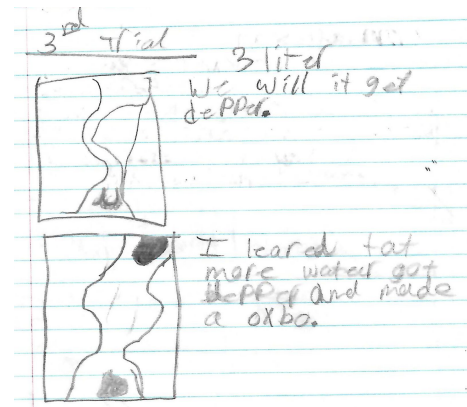 3rd Trial
3 liter
We will it get
depper.
I leared tat
more water got
depper and made
a oxbo.